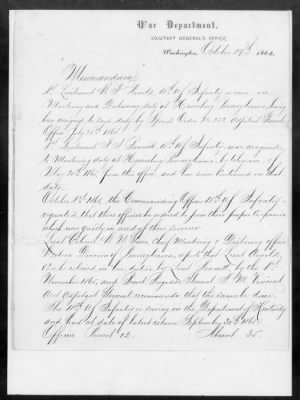 War Department,
ADJUTANT GENERAL'S OFFICE,
Washington, October 19th, 1865.
Memorandum
1st Lieutenant W. F. 16th US Infantry is now on
Mustering and Disbursing duty at Harrisburg Pennsylvania, having
been assigned to such duty by Special Order No. Adjutant General's
Office July 21st 1865
1st Lieutenant 16th US Infantry was assigned
to Mustering duty at Harrisburg Pennsylvania, by telegram of
May 20th 1865 from this office and has since continued on that
duty.
October 1st 1865, the Commanding Officer 16th US Infantry
requested that these officers be ordered to join their proper companies
which were greatly in need of their services.
Lieut Colonel Chief Mustering & Disbursing officer
Western Division of Pennsylvania, reports that Lieut
can be relieved in his duties by Lieut by the 1st
November 1865, and Brevet Brigadier General T. M. Vincent
Asst Adjutant General recommends that the same be done.
The 16th US Infantry is serving in the Department of Kentucky
and had at date of latest return September 30th 1865
Officers Present 12. Absent 25.